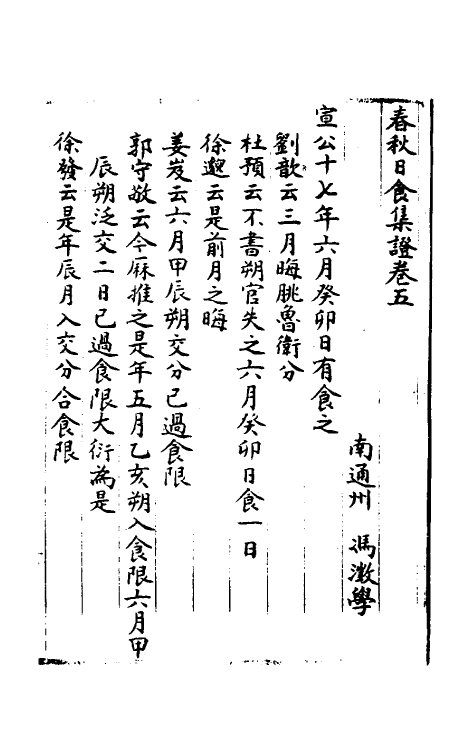 春秋日食集證卷五
南通州　馮澂學
宣公十七年六月癸卯日有食之
劉歆云三月晦朓魯衛分
杜預云不書朔官失之六月癸卯日食一日
徐邈云是前月之晦
姜岌云六月甲辰朔交分已過食限
郭守敬云今厤推之是年五月乙亥朔入食限六月甲
辰朔泛交二日已過食限大衍為是
徐發云是年辰月入交分合食限